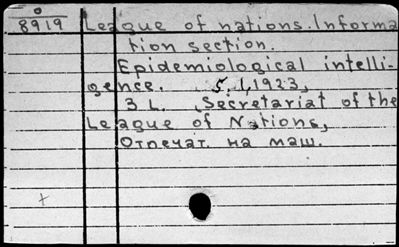 8919 League of nations. Informa
tion section.
Epidemiological intelli-
gence. 5.1,1923,
3 L. Secretariat of the
League of Nations,
Отпечат. на маш.